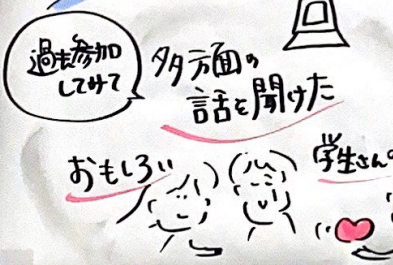 過去参加
してみて
多方面の
話を聞けた
おもしろい
学生さんの